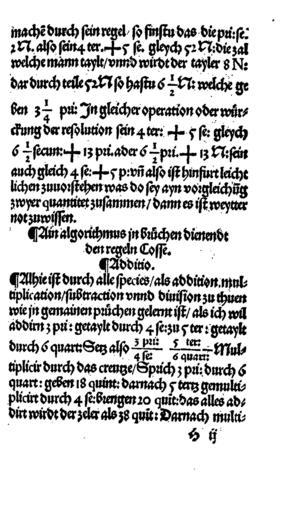 machẽ durch sein regel/ so finstu das die pri: se.
2 N. also sein 4 ter. ┼ 5 se. gleych 52 N: die zal
welche mann taylt/ vnnd wirdt der tayler 8 N:
dar durch teile 52 N so hastu 6 1/2 N: welche ge
ben 3 1/4 pri: In gleicher operation oder wür⸗
ckung der resolution sein 4 ter: ┼ 5 se: gleych
6 1/2 secun: ┼ 13 pri. ader 6 1/2 pri. ┼ 13 N: sein
auch gleich 4 se: ┼ 5 p: vñ also ist hinfurt leicht
lichen zuuorstehen was do sey ayn vorgleichũg
zwyer quantitet zusammen/ dann es ist weytter
not zuwissen.
¶Ain algorithmus in brüchen dienendt
den regeln Cosse.
¶Additio.
¶Alhie ist durch alle species/ als addition. mul⸗
tiplication/ subtraction vnnd diuision zu thuen
wie in gemainen prüchen gelernt ist/ als ich wil
addirn 3 pri: getaylt durch 4 se: zu 5 ter: getaylt
durch 6 quart: Setz also 3 pri:/4 se: 5 ter:/6 quart: Mul⸗
tiplicir durch das creutze/ Sprich 3 pri: durch 6
quart: geben 18 quint: darnach 5 terz gemulti⸗
plicirt durch 4 se: brengen 20 quit: das alles ad⸗
dirt wirdt der zeler als 38 quit: Darnach multi⸗
H ij